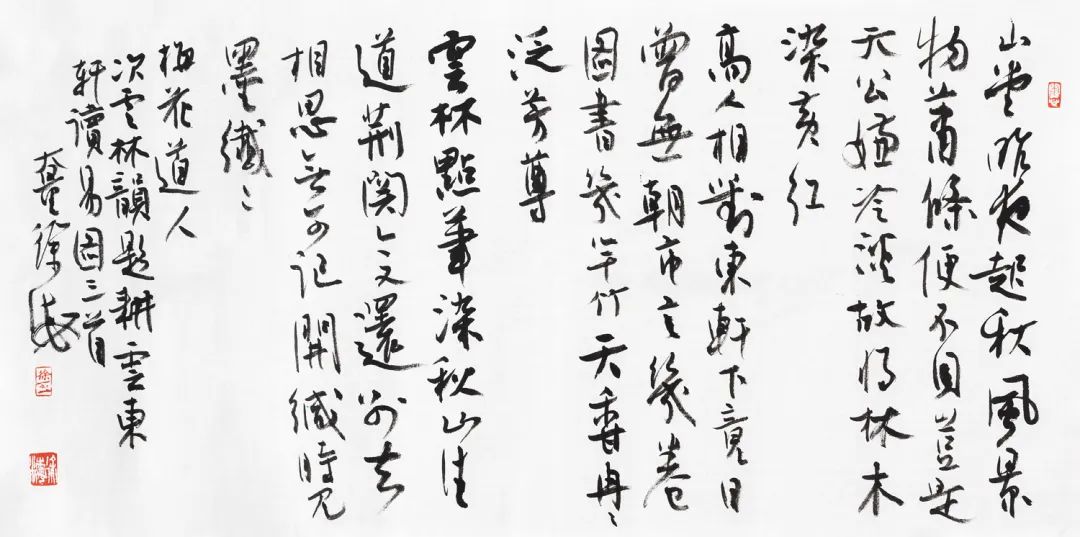 山堂昨夜起秋風景
物蕭條便不同豈是
天公嫌冷淡故將林木
染黃紅
高人相對東軒下竟日
曾無朝市言幾卷
圖書幾竿竹天香冉〻
泛芳尊
雲林點筆染秋山往
道荆関今又還別去
相思無可記開緘時見
墨纖〻
梅花道人
次雲林韻題耕雲東
軒讀易圖三首
徐